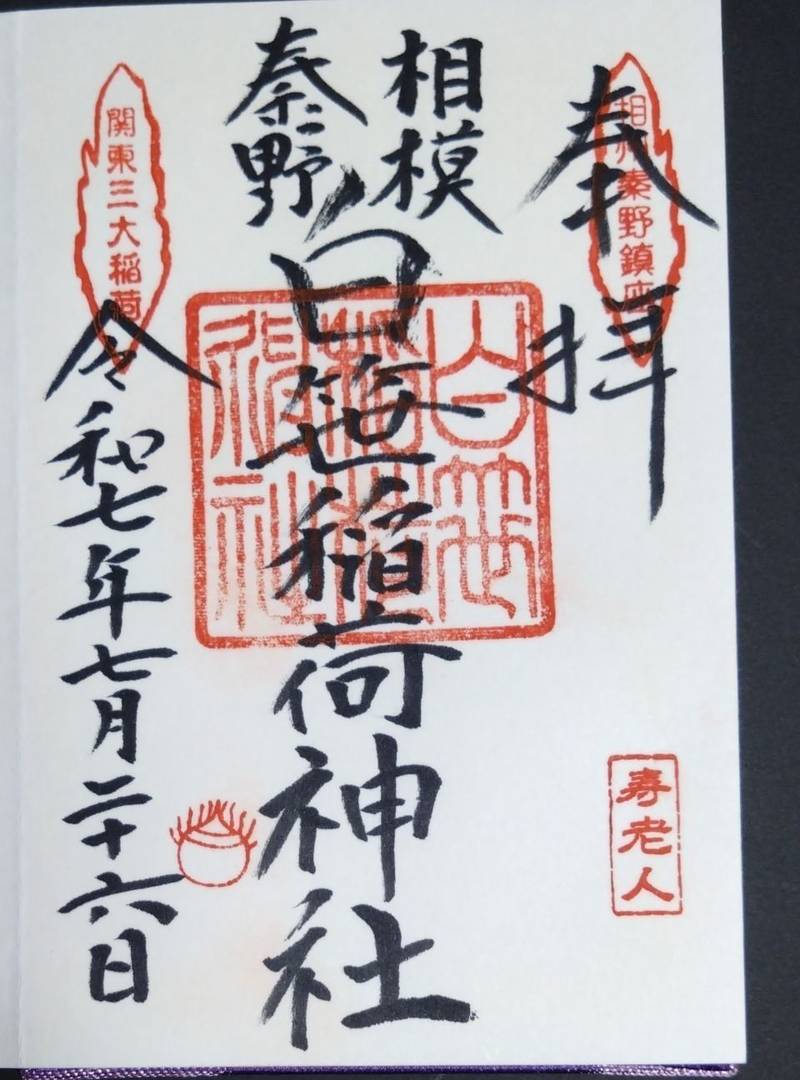 奉拝
相州秦野鎮座
寿老人
相模
秦野
白笹稲荷神社
白笹
稲荷
神社
関東三大稲荷
令和七年七月二十六日